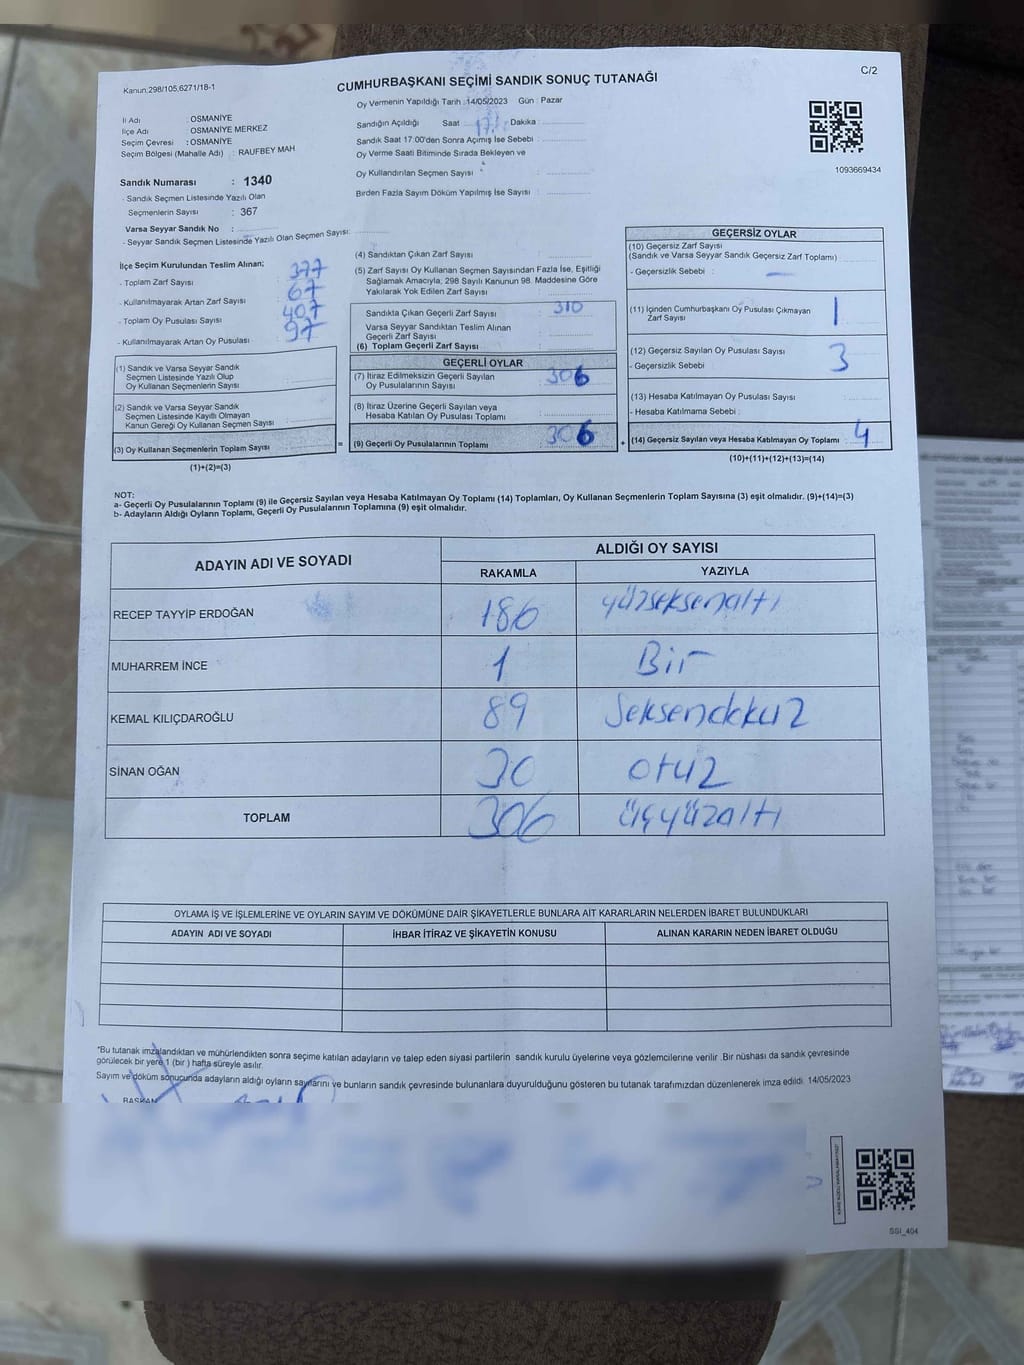 Kanun:298/105,6271/18-1
CUMHURBAŞKANI SEÇİMİ SANDIK SONUÇ TUTANAĞI
C/2
Oy Vermenin Yapıldığı Tarih :14/05/2023 Gün : Pazar
İl Adı : OSMANİYE
İlçe Adı : OSMANİYE MERKEZ
Seçim Çevresi : OSMANİYE
Seçim Bölgesi (Mahalle Adı) : RAUFBEY MAH
Sandığın Açıldığı Saat 17 Dakika :
Sandık Saat 17:00'den Sonra Açımış İse Sebebi :
Oy Verme Saati Bitiminde Sırada Bekleyen ve
Oy Kullandırılan Seçmen Sayısı :
Birden Fazla Sayım Döküm Yapılmış İse Sayısı :
1093669434
Sandık Numarası : 1340
- Sandık Seçmen Listesinde Yazılı Olan
Seçmenlerin Sayısı : 367
Varsa Seyyar Sandık No :
- Seyyar Sandık Seçmen Listesinde Yazılı Olan Seçmen Sayısı:
İlçe Seçim Kurulundan Teslim Alınan;
- Toplam Zarf Sayısı : 377
- Kullanılmayarak Artan Zarf Sayısı : 67
- Toplam Oy Pusulası Sayısı : 407
- Kullanılmayarak Artan Oy Pusulası : 97
(1) Sandık ve Varsa Seyyar Sandık
Seçmen Listesinde Yazılı Olup
Oy Kullanan Seçmenlerin Sayısı :
(2) Sandık ve Varsa Seyyar Sandık
Seçmen Listesinde Kayıtlı Olmayan
Kanun Gereği Oy Kullanan Seçmen Sayısı :
(3) Oy Kullanan Seçmenlerin Toplam Sayısı :
(1)+(2)=(3)
(4) Sandıktan Çıkan Zarf Sayısı :
(5) Zarf Sayısı Oy Kullanan Seçmen Sayısından Fazla İse, Eşitliği
Sağlamak Amacıyla; 298 Sayılı Kanunun 98. Maddesine Göre
Yakılarak Yok Edilen Zarf Sayısı :
Sandıkta Çıkan Geçerli Zarf Sayısı : 310
Varsa Seyyar Sandıktan Teslim Alınan
Geçerli Zarf Sayısı :
(6) Toplam Geçerli Zarf Sayısı :
GEÇERLİ OYLAR
(7) İtiraz Edilmeksizin Geçerli Sayılan
Oy Pusulalarının Sayısı : 306
(8) İtiraz Üzerine Geçerli Sayılan veya
Hesaba Katılan Oy Pusulası Toplamı :
= (9) Geçerli Oy Pusulalarının Toplamı : 306 +
GEÇERSİZ OYLAR
(10) Geçersiz Zarf Sayısı
(Sandık ve Varsa Seyyar Sandık Geçersiz Zarf Toplamı) :
- Geçersizlik Sebebi : —
(11) İçinden Cumhurbaşkanı Oy Pusulası Çıkmayan
Zarf Sayısı : 1
(12) Geçersiz Sayılan Oy Pusulası Sayısı : 3
- Geçersizlik Sebebi :
(13) Hesaba Katılmayan Oy Pusulası Sayısı :
- Hesaba Katılmama Sebebi :
(14) Geçersiz Sayılan veya Hesaba Katılmayan Oy Toplamı : 4
(10)+(11)+(12)+(13)=(14)
NOT:
a- Geçerli Oy Pusulalarının Toplamı (9) ile Geçersiz Sayılan veya Hesaba Katılmayan Oy Toplamı (14) Toplamları, Oy Kullanan Seçmenlerin Toplam Sayısına (3) eşit olmalıdır. (9)+(14)=(3)
b- Adayların Aldığı Oyların Toplamı, Geçerli Oy Pusulalarının Toplamına (9) eşit olmalıdır.
ADAYIN ADI VE SOYADI ALDIĞI OY SAYISI
RAKAMLA YAZIYLA
RECEP TAYYİP ERDOĞAN 186 yüzseksenaltı
MUHARREM İNCE 1 Bir
KEMAL KILIÇDAROĞLU 89 Seksendokuz
SİNAN OĞAN 30 otuz
TOPLAM 306 üçyüzaltı
OYLAMA İŞ VE İŞLEMLERİNE VE OYLARIN SAYIM VE DÖKÜMÜNE DAİR ŞİKAYETLERLE BUNLARA AİT KARARLARIN NELERDEN İBARET BULUNDUKLARI
ADAYIN ADI VE SOYADI İHBAR İTİRAZ VE ŞİKAYETİN KONUSU ALINAN KARARIN NEDEN İBARET OLDUĞU
*Bu tutanak imzalandıktan ve mühürlendikten sonra seçime katılan adayların ve talep eden siyasi partilerin sandık kurulu üyelerine veya gözlemcilerine verilir .Bir nüshası da sandık çevresinde
görülecek bir yere 1 (bir ) hafta süreyle asılır.
Sayım ve döküm sonucunda adayların aldığı oyların sayılarını ve bunların sandık çevresinde bulunanlara duyurulduğunu gösteren bu tutanak tarafımızdan düzenlenerek imza edildi. 14/05/2023
BAŞKAN
SSI_404